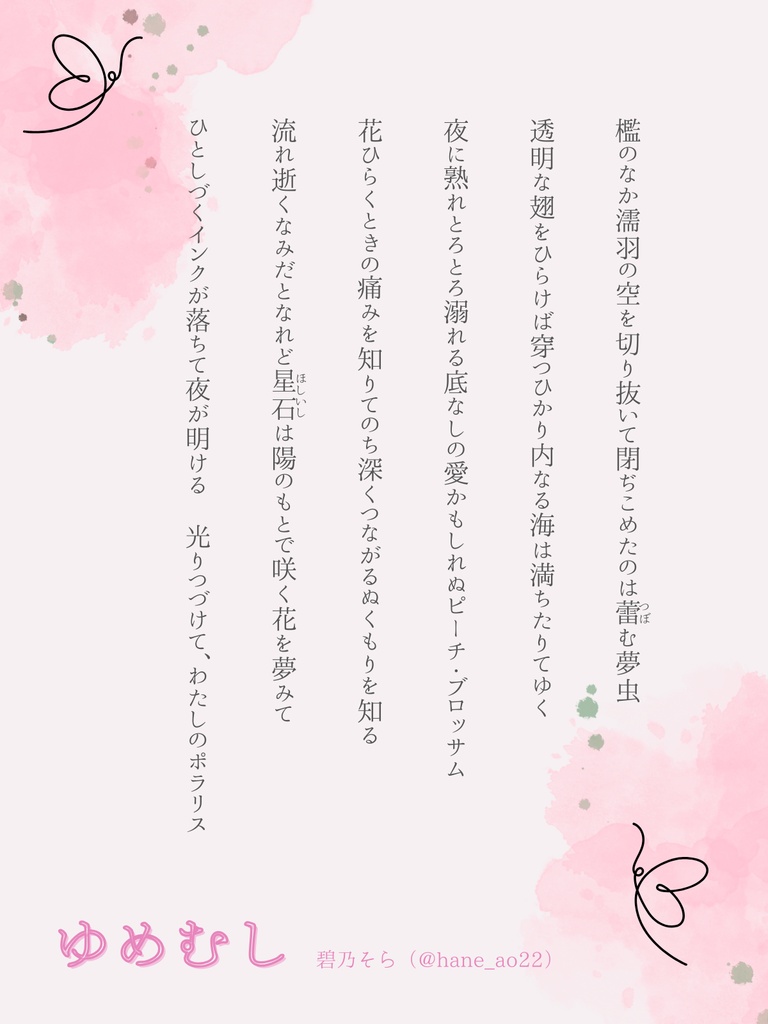 檻のなか濡羽の空を切り抜いて閉ぢこめたのは蕾む夢虫
つぼ
透明な翅をひらけば穿つひかり内なる海は満ちたりてゆく
夜に熟れとろとろ溺れる底なしの愛かもしれぬピーチ・ブロッサム
花ひらくときの痛みを知りてのち深くつながるぬくもりを知る
流れ逝くなみだとなれど星石は陽のもとで咲く花を夢みて
ほしいし
ひとしづくインクが落ちて夜が明ける　光りつづけて、わたしのポラリス
ゆめむし
碧乃そら（@hane_ao22）